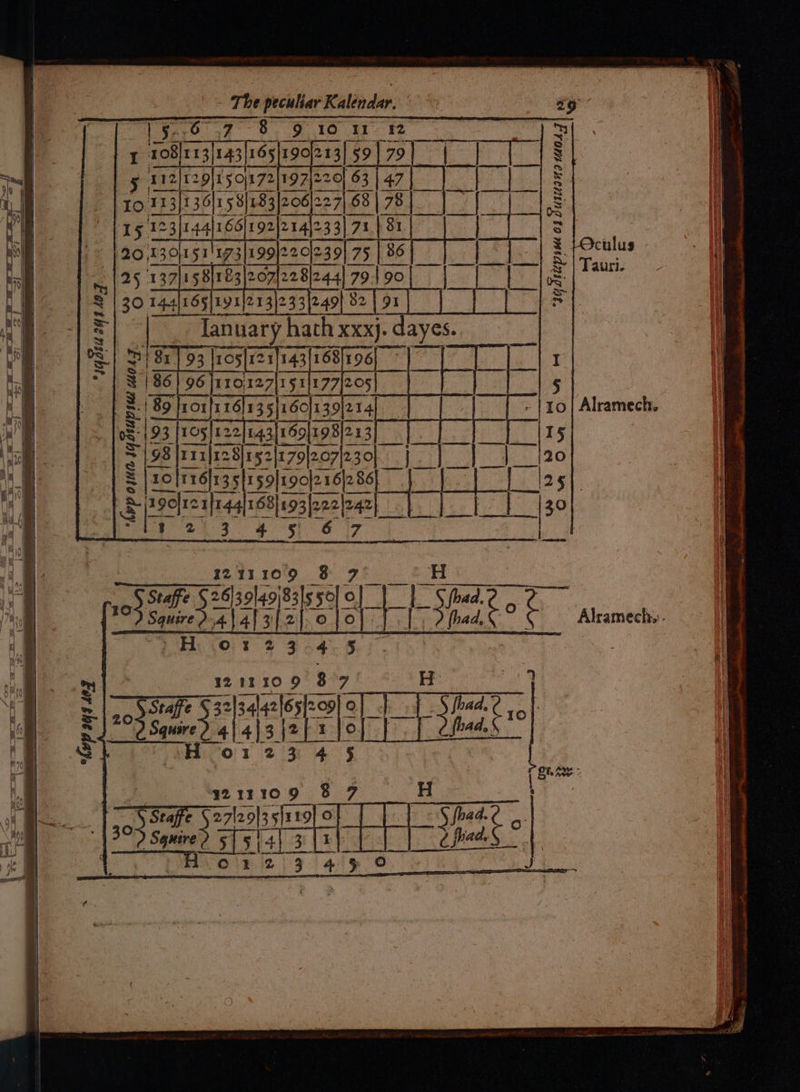 The peculiar Kalendar. 29
5 6 7 8 9 10 11 12
1 108|113|143|165|190|213| 59 | 79
5 112|129|150|172|197|220| 63 | 47
10 113|136|158|183|206|227| 68 | 78
15 123|144|166|192|214|233| 71 | 81
20 130|151|173|199|220|239| 75 | 86
25 137|158|183|207|228|244| 79 | 90
30 144|165|191|213|233|249| 82 | 91
From evening to midnight.
Oculus
Tauri.
For the night.
Ianuary hath xxxj. dayes.
From midnight unto day.
81 | 93 |105|121|143|168|196| 1
86 | 96 |110|127|151|177|205| 5
89 |101|116|135|160|139|214| 10 Alramech.
93 |105|122|143|169|198|213| 15
98 |111|128|152|179|207|230| 20
10 |116|135|159|190|216|286| 25
190|121|144|168|193|222|242| 30
1 2 3 4 5 6 7
12 11 10 9 8 7 H
10 Staffe 26|39|49|83|550| 0 | shad. 0
Squire 4 | 4 | 3 | 2 | 0 | 0 | shad. Alramech.
H 0 1 2 3 4 5
For the day.
12 11 10 9 8 7 H
20 Staffe 32|34|42|65|209| 0 | shad. 10
Squire 4 | 4 | 3 | 2 | 1 | 0 | shad.
H 0 1 2 3 4 5
12 11 10 9 8 7 H
30 Staffe 27|29|35|119| 0 | shad. 0
Squire 5 | 5 | 4 | 3 | 1 | shad.
H 0 1 2 3 4 5 0